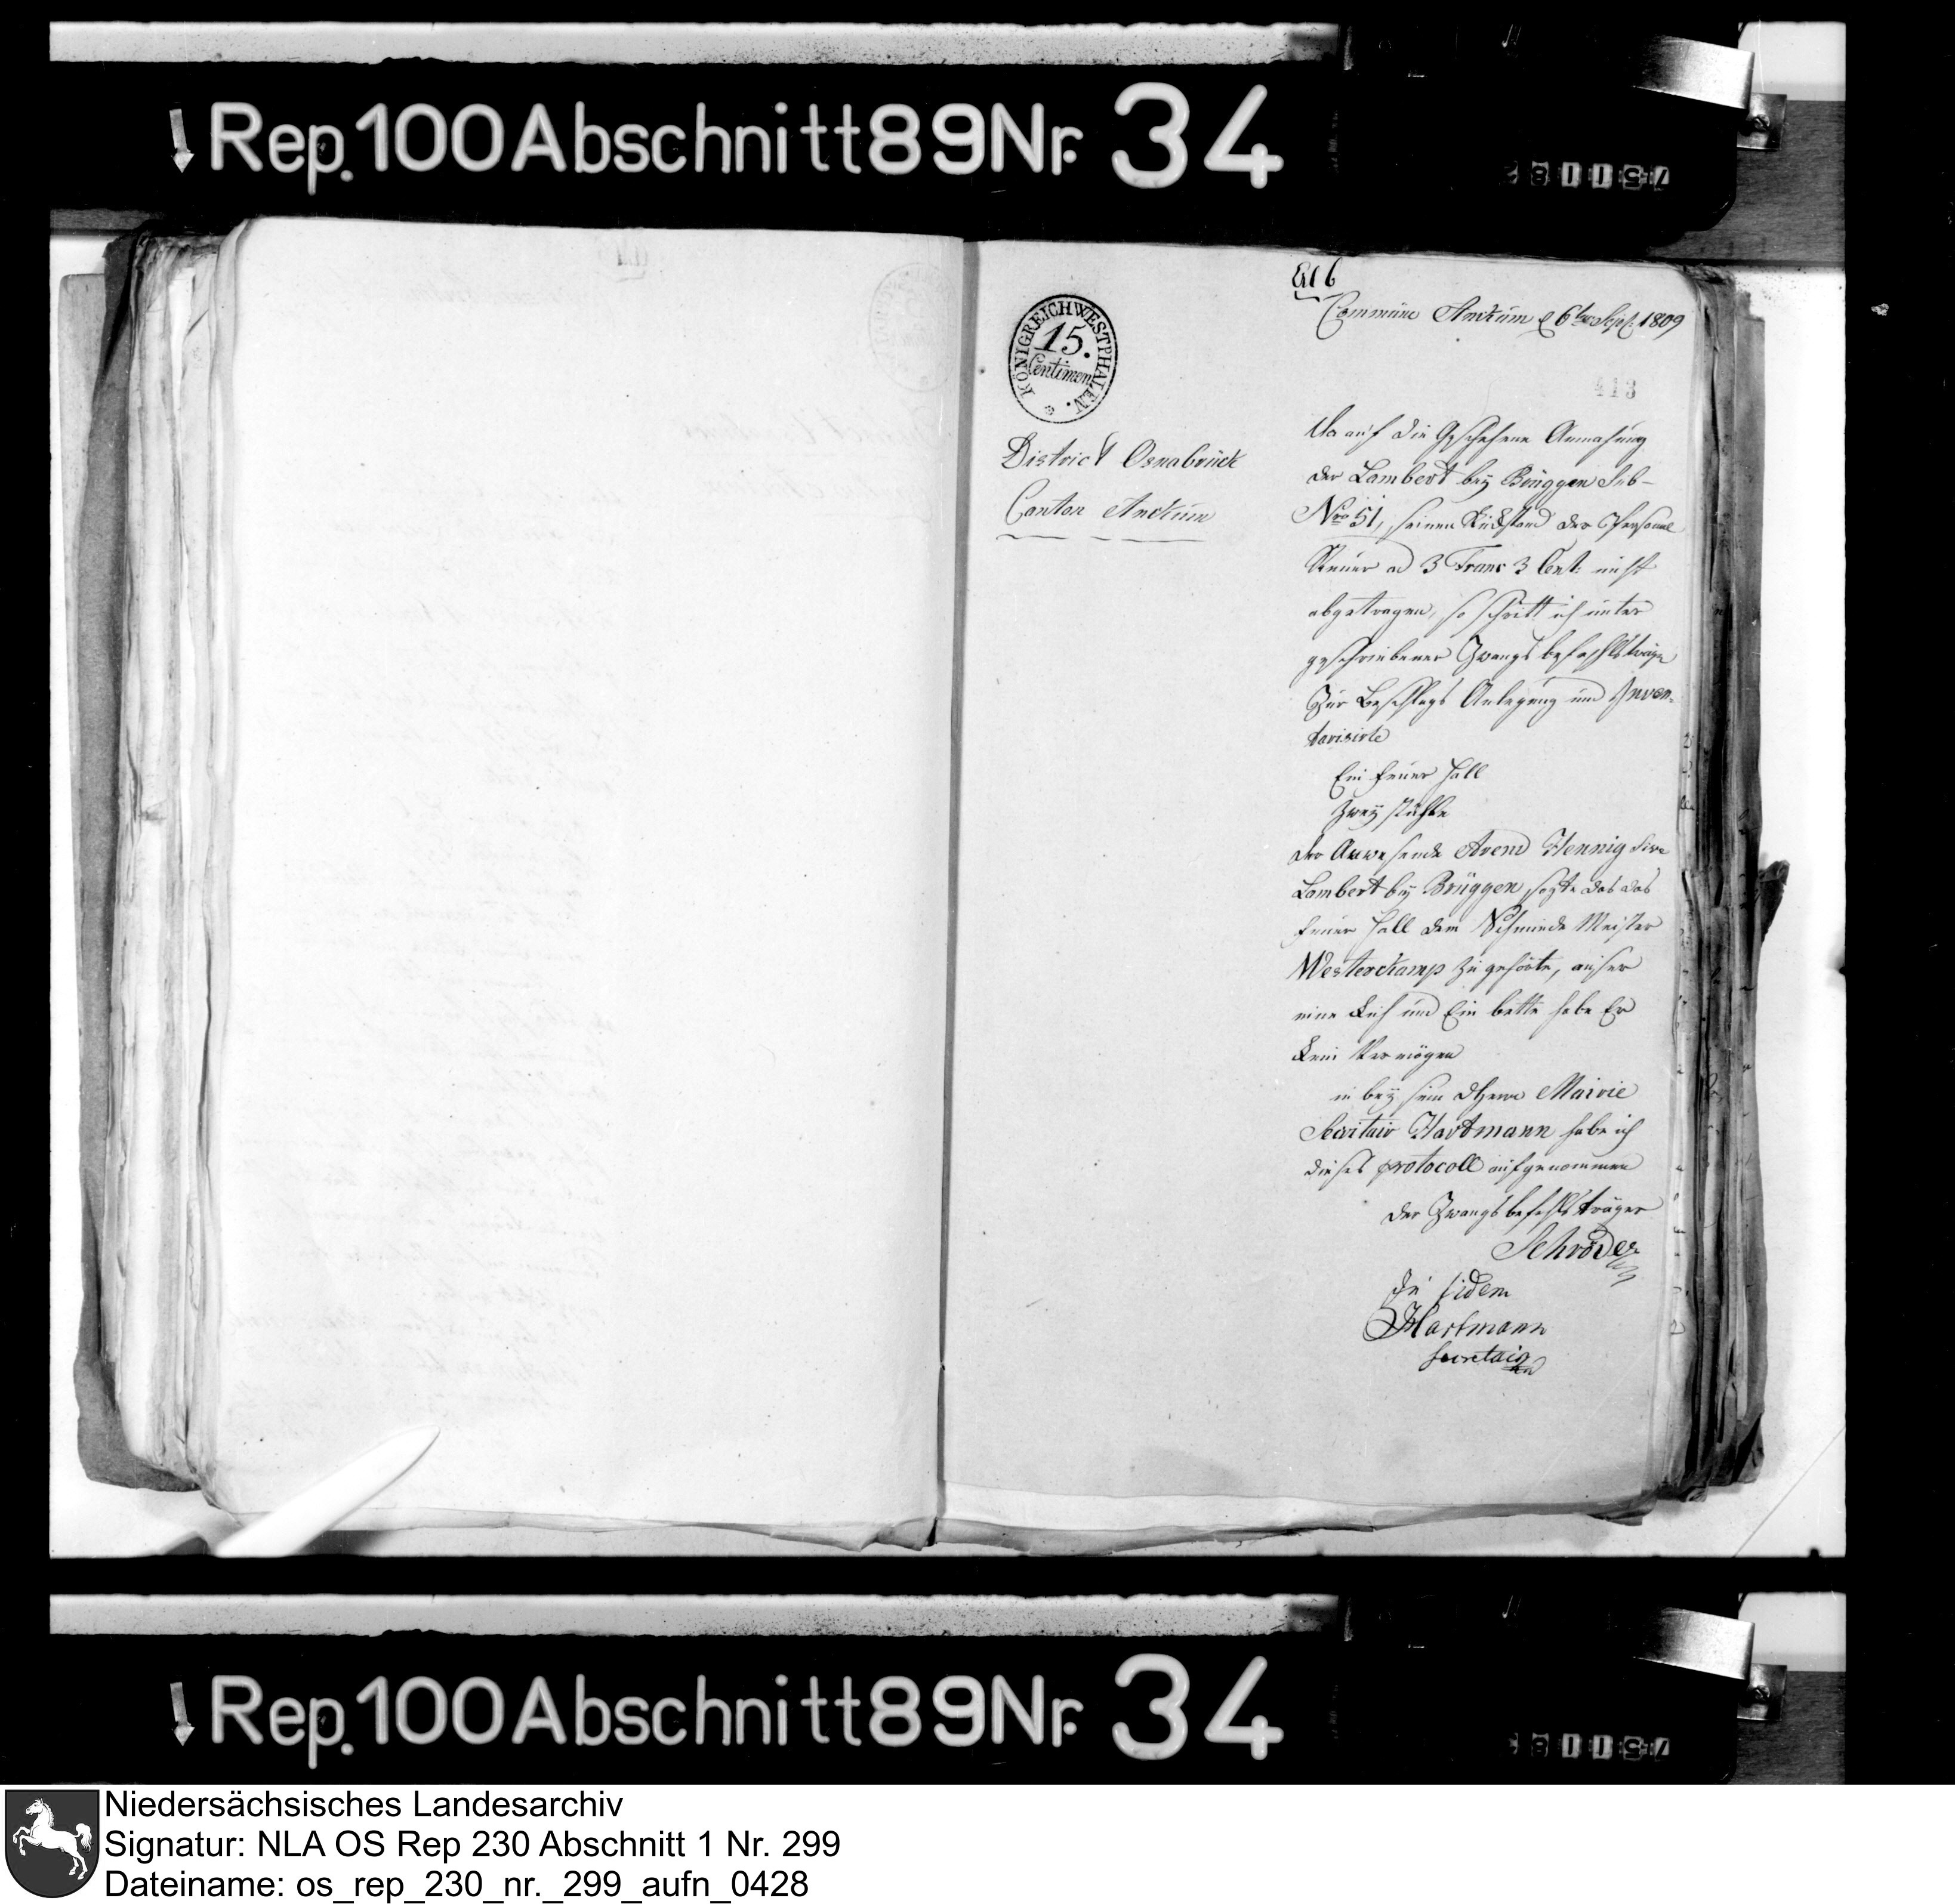 Rep. 100 Abschnitt 89 Nr. 34
416
Commune Anckum d 6ten Sept. 1809
KÖNIGREICH WESTPHALEN.
15.
Centimen
413
District Osnabrück
Canton Anckum
Da auf die Geschehene Anmahung
der Lambert bey Brüggen sub
Nro 51, seinen Rückstand der Personal
Steuer ad 3 Franc 3 Cent. nicht
abgetragen, so schritt ich unter
geschriebener Zwangsbefehlsträger
Zur Beschlags Anlegung und Inven-
tarisirte
Ein feuer Hall
Zwey stühle
der Anwesende Arend Hennig sive
Lambert bey Brüggen, sagte das das
feuer Hall dem Schmiede Meister
Westerckamp zu gehörte, ausser
eine Kuh und Ein bette habe Er
Kein Vermögen
in bey sein dHerrn Mairie
Secritair Hartmann habe ich
dieses protocoll aufgenommen
der Zwangsbefehlsträger
Schröder
In fidem
Hartmann
Secretair
Rep. 100 Abschnitt 89 Nr. 34
Niedersächsisches Landesarchiv
Signatur: NLA OS Rep 230 Abschnitt 1 Nr. 299
Dateiname: os_rep_230_nr._299_aufn_0428